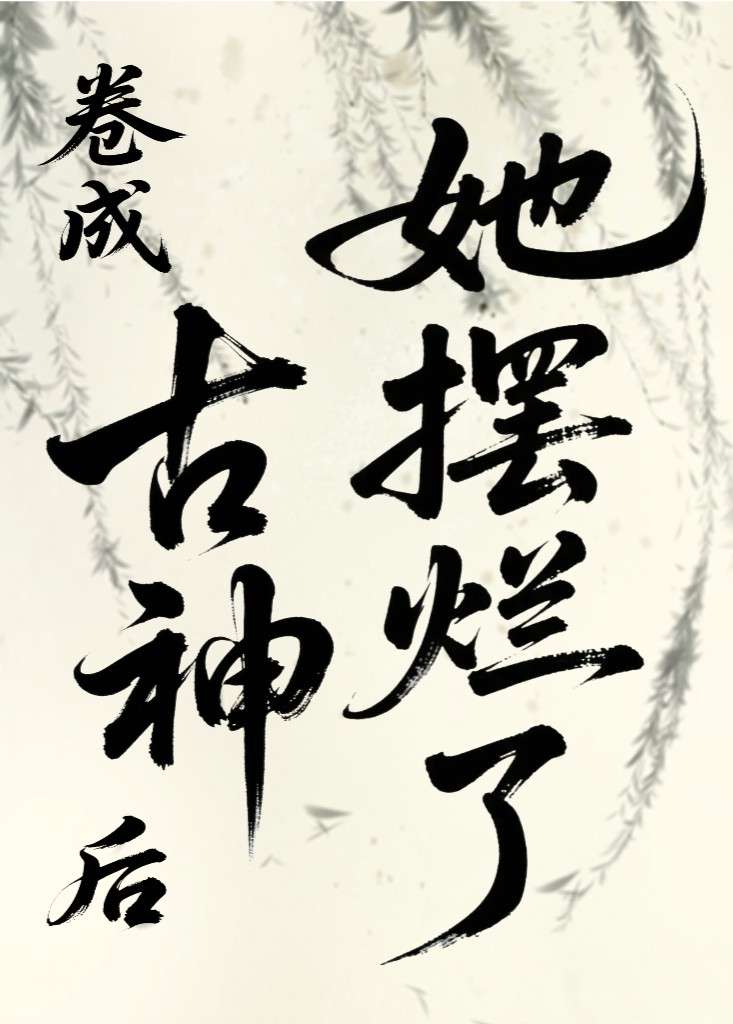 卷成古神后
她摆烂了